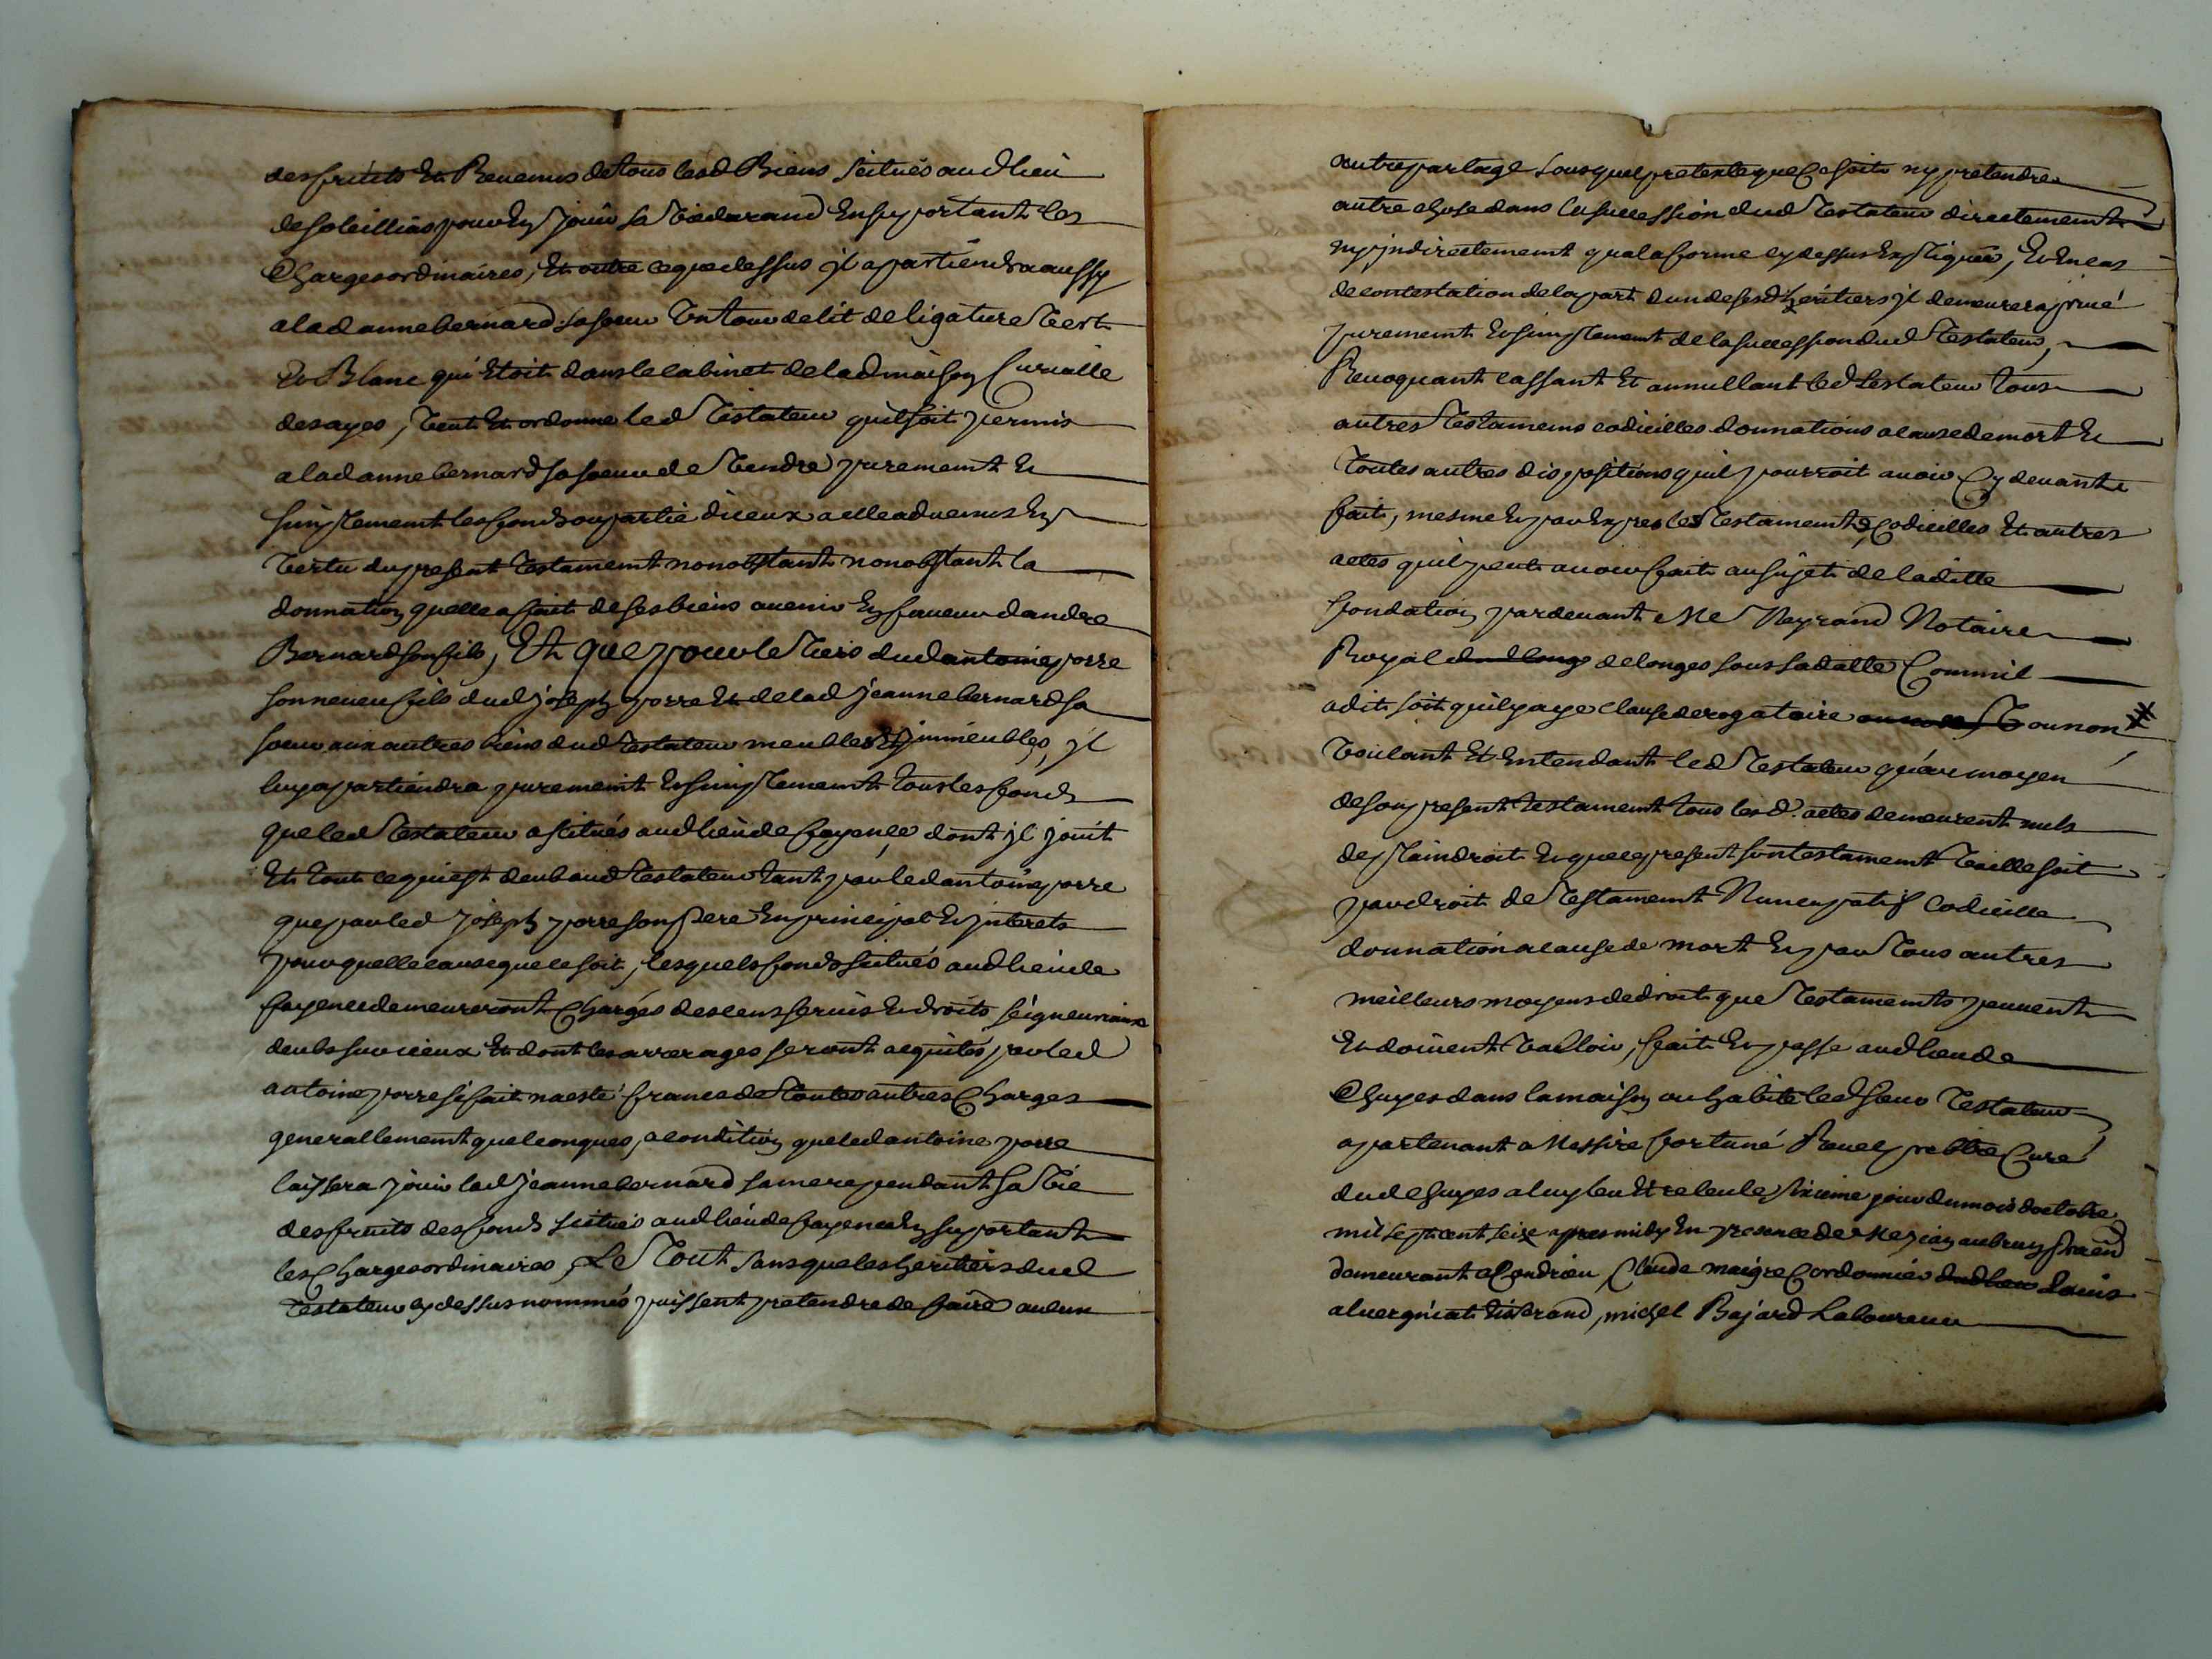 des fruits Et Revenus de tous lesd Biens scitués aud lieu
de soleillias pour En jouir sa vie durand En suportant les
Charges ordinaires, Et outre ce que dessus jl apartiendra aussy
a lad anne bernard sa soeur un tour de lit de ligature vert
Et Blanc qui Etoit dans le cabinet de lad maison Curialle
desayes, veut Et ordonne led Testateur quil soit permis
a lad anne bernard sa soeur de vendre purement Et
simplement les fonds ou partie diceux a elle advenus En
vertu du present testament nonobstant nonobstant la
donnation quelle a fait de ses biens avenir En faveur dandre
Bernard son fils, Et que pour le Tiers dud antoine porre
son neveu fils dud joseph porre Et de lad jeanne bernard sa
soeur aux autres biens dud testateur meubles Et jmmeubles, jl
luy apartiendra purement Et simplement tous les fonds
que led Testateur a scitués aud lieu de fayence, dont jl jouit
Et tout ce qui est deub aud Testateur tant par led antoine porre
que par led joseph porre son Pere En principal Et jnterets
pour quelle cause que ce soit, lesquels fonds scitués aud lieu de
fayence demeureront Chargés des cens servis Et droits seigneuriaux
deubs sur iceux Et dont les arrerages seront acquités par led
antoine porre si fait na esté francs de toutes autres Charges
generallement quelconques, a condition que led antoine porre
laissera jouir lad jeanne bernard sa mere pendant sa vie
des fruits des fonds scitués aud lieu de fayence En suportant
les Charges ordinaires, Le Tout sans que les heritiers dud
Testateur cy dessus nommés puissent pretendre de faire aucun
autre partage sous quel pretexte que Ce soit ny pretendre
autre chose dans la succession dud Testateur directement
ny jndirectement qua la forme cy dessus Expliquée, Et En cas
de contestation de la part dun de sesd heritiers jl demeurera privé
purement Et simplement de la succession dud Testateur,
Revoquant cassant Et annullant led testateur tous
autres Testamens codicilles donnations a cause de mort Et
Toutes autres dispositions quil pourroit avoir Cy devant
fait, mesme Et par Exprès les Testament, Codicilles Et autres
actes quil peut avoir fait au sujet de laditte
fondation pardevant Me Neyrand Notaire
Royal de longes sous sa datte Comm il
adit soit quil y aye clause derogatoire ou non
voulant Et Entendant led Testateur quau moyen
de son present testament tous lesd. actes demeurent nuls
de plain droit Et que le present son testament vaille soit
par droit de Testament Nuncupatif Codicille
donnation a cause de mort Et par tous autres
meilleurs moyens de droit que Testaments peuvent
Et doivent valloir, fait Et passe aud lieu de
Chuyes dans la maison ou habite led sieur Testateur
apartenant a Messire fortuné Revel prebtre Curé
dud Chuyes a luy leu Et releu le sixieme jour du mois doctobre
mil sept cent seize apres midy En presence de
demeurant a Condrieu Claude maigre Cordonnier
michel Bajard Laboureur